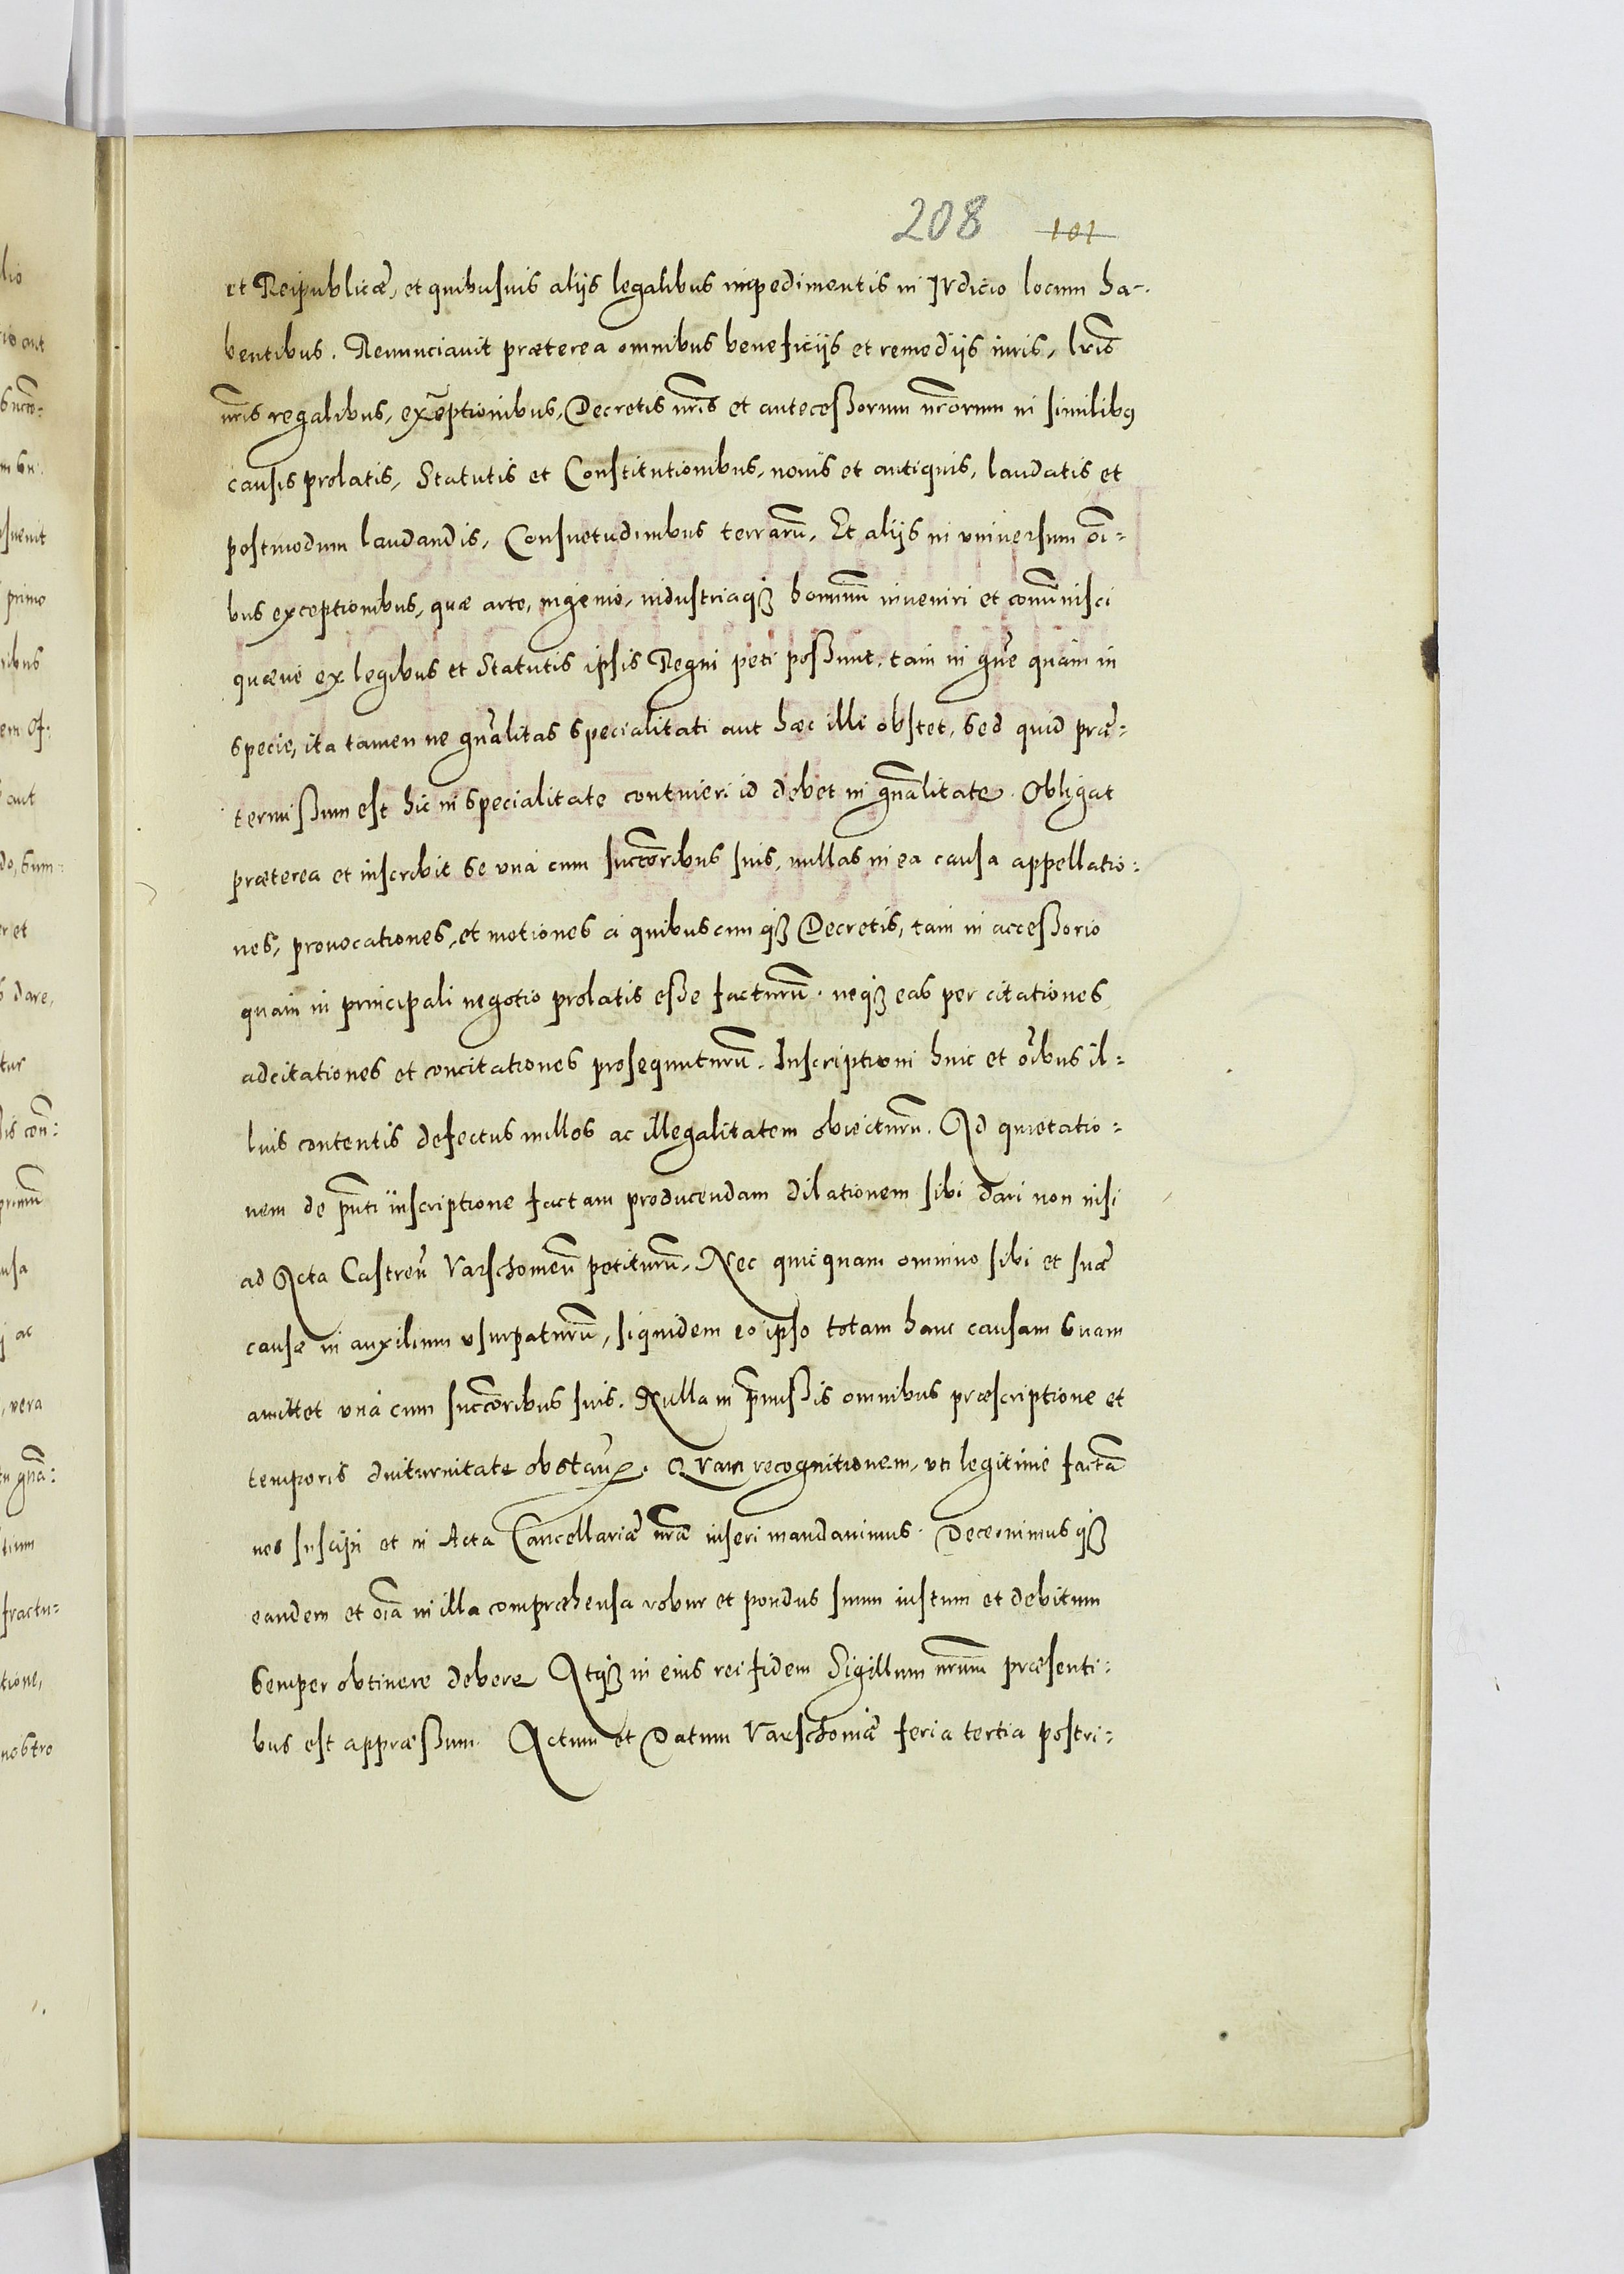 208 101
et Reipublicæ, et quibusuis alijs legalibus impedimentis in IVdicio locum ha-
bentibus. Renunciauit præterea omnibus beneficijs et remedijs iuris, lris̃
nr̃is regalibus, exceptionibus, Decretis nr̃is et anteceßorum nr̃orum in similibꝰ
causis prolatis, Statutis et Constitutionibus, nouis et antiquis, laudatis et
postmodum laudandis, Consuetudinibus terrarũ, Et alijs in vniuersum oĩ=
bus exceptionibus, quæ arte, ingenio, industriaqꝫ hominũ inueniri et com̃inisci
quæue ex legibus et Statutis ipsis Regni peti poßunt, tam in gñe quàm in
specie, ita tamen ne gñalitas specialitati aut hæc illi obstet, sed quid præ=
termißum est hic in specialitate contineri id debet in gñalitate. Obligat
præterea et inscribit se vnà cum succõribus suis, nullas in ea causa appellatio=
nes, prouocationes, et motiones à quibuscumqꝫ Decretis, tam in acceßorio
quàm in principali negotio prolatis eße facturũ. neqꝫ eas per citationes
adcitationes et concitationes prosequuturũ. Inscriptioni huic et oĩbus il=
lius contentis defectus nullos ac illegalitatem obiecturũ. Ad quietatio=
nem de pñti inscriptione factam producendam dilationem sibi dari non nisi
ad Acta Castreñ Varschouieñ petiturũ, Nec quicquam omnino sibi et suæ
causæ in auxilium vsurpaturũ, siquidem eo ipso totam hanc causam suam
amittet vnà cum succõribus suis. Nulla in p̃mißis omnibus præscriptione et
temporis diuturnitate obstañ. QVam recognitionem, vti legitimè factã
nos suscipi et in Acta Cancellariæ nr̃æ inseri mandauimus. Decernimusqꝫ
eandem et oĩa in illa compræhensa robur et pondus suum iustum et debitum
semper obtinere debere Atqꝫ in eius rei fidem Sigillum nr̃um præsenti=
bus est appræßum. Actum et Datum Varschouiæ feria tertia postri=